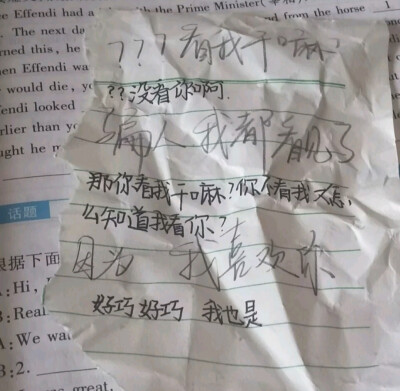 e Effendi had a
with the Prime Minister(
. The next da
d from the horse 1
rned this, he
en Effendi wa
would die, y
fendi looked
rlier than yo
ught he m
???看我干嘛
??没看你啊.
骗人 我都看见了
那你看我干嘛?你不看我又怎
么知道我看你?
因为 我喜欢你
好巧好巧 我也是
话题
根据下面
A:Hi,
B:Real
A:We wa
B:2.
great,